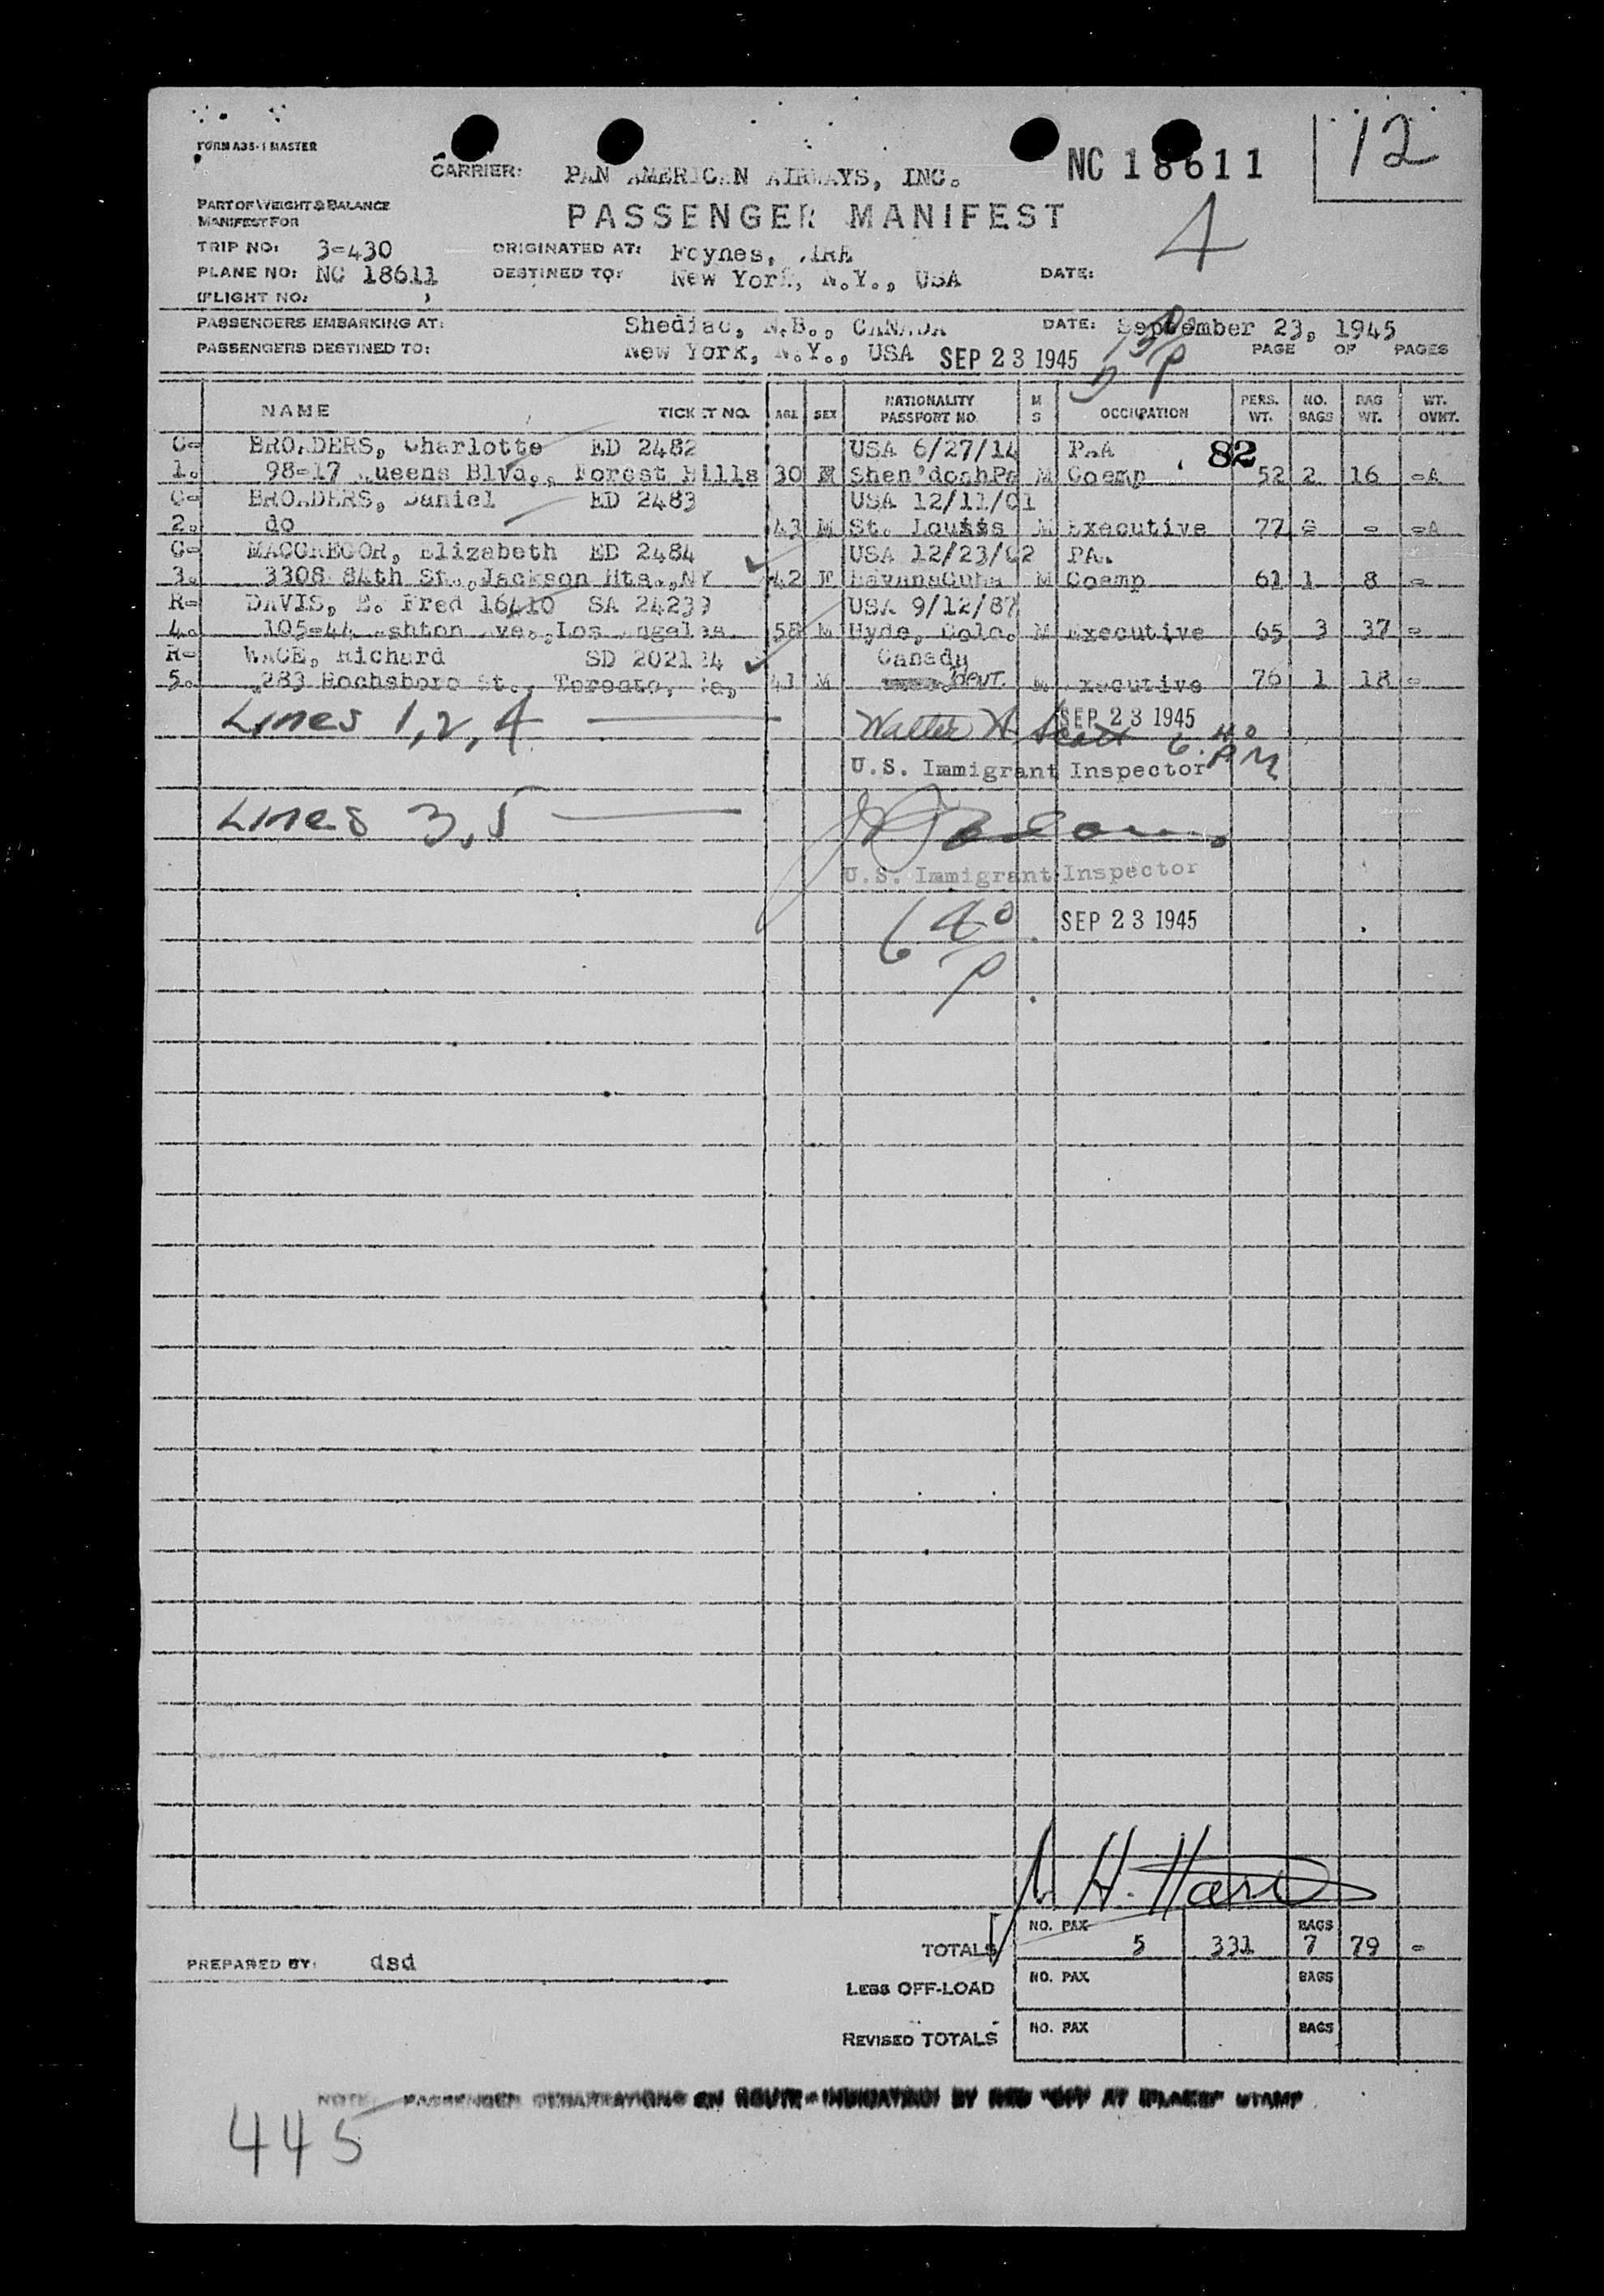 FORM A35-1 MASTER
CARRIER: PAN AMERICAN AIRWAYS, INC. NC 18611 12
PART OF WEIGHT & BALANCE
MANIFEST FOR
PASSENGER MANIFEST 4
TRIP NO: 3-430 ORIGINATED AT: Foynes, IRE
PLANE NO: NC 18611 DESTINED TO: New York, N.Y., USA DATE:
(FLIGHT NO: )
PASSENGERS EMBARKING AT: Shediac, N.B., CANADA DATE: September 23, 1945
PASSENGERS DESTINED TO: New York, N.Y., USA SEP 23 1945 PAGE OF PAGES
NAME TICKET NO. AGE SEX NATIONALITY PASSPORT NO M S OCCUPATION PERS. WT. NO. BAGS BAG WT. WT. OVHT.
C- BROADERS, Charlotte ED 2482 USA 6/27/14 PAA 82
1. 98-17 Queens Blvd., Forest Hills 30 F Shen'doahPa M Coemp 52 2 16 -A
C- BROADERS, Daniel ED 2483 USA 12/11/01
2. do 43 M St. Louis M Executive 77 - - -A
C- MACGREGOR, Elizabeth ED 2484 USA 12/23/02 PAA
3. 3308 84th St., Jackson Hts., NY 42 F HavanaCuba M Coemp 61 1 8 -
R- DAVIS, E. Fred 16410 SA 24239 USA 9/12/87
4. 105-44 Ashton Ave., Los Angeles 58 M Hyde, Colo. M Executive 65 3 37 -
R- WACE, Richard SD 202124 Canada
5. 283 St., Toronto, Ca, 41 M M Executive 76 1 18 -
Lines 1, 2, 4 Walter A Scott SEP 23 1945 6:40 PM
U.S. Immigrant Inspector
Lines 3, 5
U.S. Immigrant Inspector
6 40 P SEP 23 1945
TOTALS NO. PAX 5 331 BAGS 7 79 -
PREPARED BY: dsd
LESS OFF-LOAD NO. PAX BAGS
REVISED TOTALS NO. PAX BAGS
445